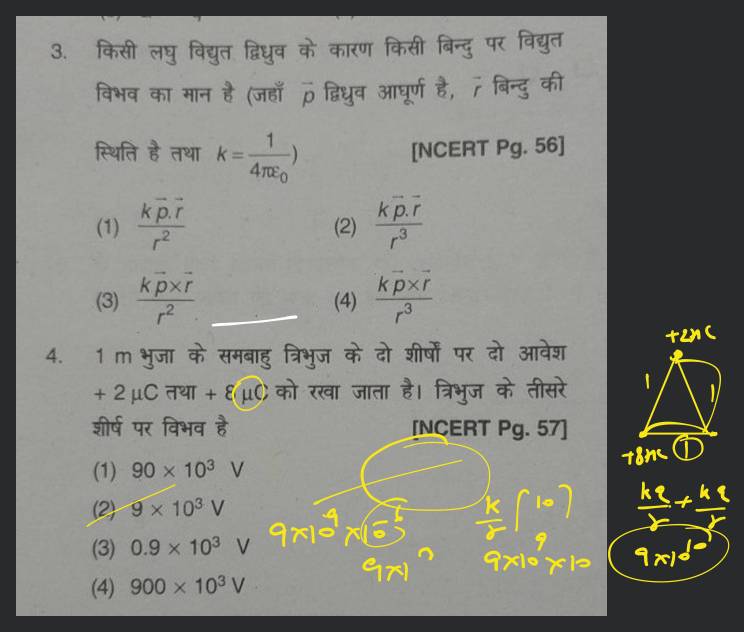 3. किसी लघु विद्युत द्विध्रुव के कारण किसी बिन्दु पर विद्युत
विभव का मान है (जहाँ p⃗ द्विध्रुव आघूर्ण है, r⃗ बिन्दु की
स्थिति है तथा k = 1/4πε₀) [NCERT Pg. 56]
(1) k p⃗.r⃗/r² (2) k p⃗.r⃗/r³
(3) k p⃗×r⃗/r² (4) k p⃗×r⃗/r³
4. 1 m भुजा के समबाहु त्रिभुज के दो शीर्षों पर दो आवेश
+ 2 μC तथा + 8 μC को रखा जाता है। त्रिभुज के तीसरे
शीर्ष पर विभव है [NCERT Pg. 57]
(1) 90 × 10³ V
(2) 9 × 10³ V
(3) 0.9 × 10³ V
(4) 900 × 10³ V
k/r [10]
9×10⁹×10
1 1
1
kq/r + kq/r
9×10¹⁰